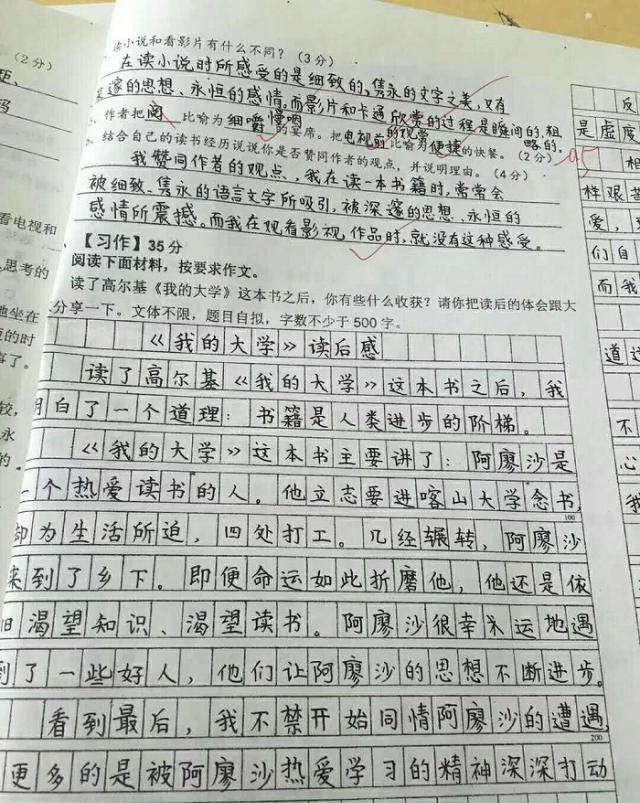 (2分)
读小说和看影片有什么不同？(3分)
在读小说时所感受的是细致的、隽永的文字之美,更有
深邃的思想、永恒的感情。而影片和卡通欣赏的过程是瞬间的、粗
略的。
作者把阅 比喻为细嚼慢咽的宴席。把电视的 的观赏比喻为便捷的快餐。(2分)
结合自己的读书经历说说你是否赞同作者的观点，并说明理由。(4分)
我赞同作者的观点、我在读一本书籍时,常常会
被细致、隽永的语言文字所吸引,被深邃的思想、永恒的
感情所震撼。而我在观看影视作品时,就没有这种感受。
【习作】35分
阅读下面材料，按要求作文。
读了高尔基《我的大学》这本书之后，你有些什么收获？请你把读后的体会跟大
分享一下。文体不限，题目自拟，字数不少于500字。
《我的大学》读后感
读了高尔基《我的大学》这本书之后，我
明白了一个道理：书籍是人类进步的阶梯。
《我的大学》这本书主要讲了：阿廖沙是
一个热爱读书的人。他立志要进喀山大学念书,
100
却为生活所迫，四处打工。几经辗转，阿廖沙
来到了乡下。即便命运如此折磨他，他还是依
旧渴望知识、渴望读书。阿廖沙很幸运地遇
到了一些好人，他们让阿廖沙的思想不断进步。
看到最后，我不禁开始同情阿廖沙的遭遇,
200
更多的是被阿廖沙热爱学习的精神深深打动
看电视和
思考的
他坐在
的时
事了。
较,
永
的。
反
是虚度
相
样艰苦
爱，
们自
而我
道这
不
心
我